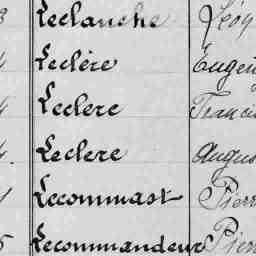 3 Leclanche Léon
4 Leclère Eugèn
4 Leclerc Francis
4 Leclere Augus
1 Lecommast Pierr
5 Lecommandeur Pierr